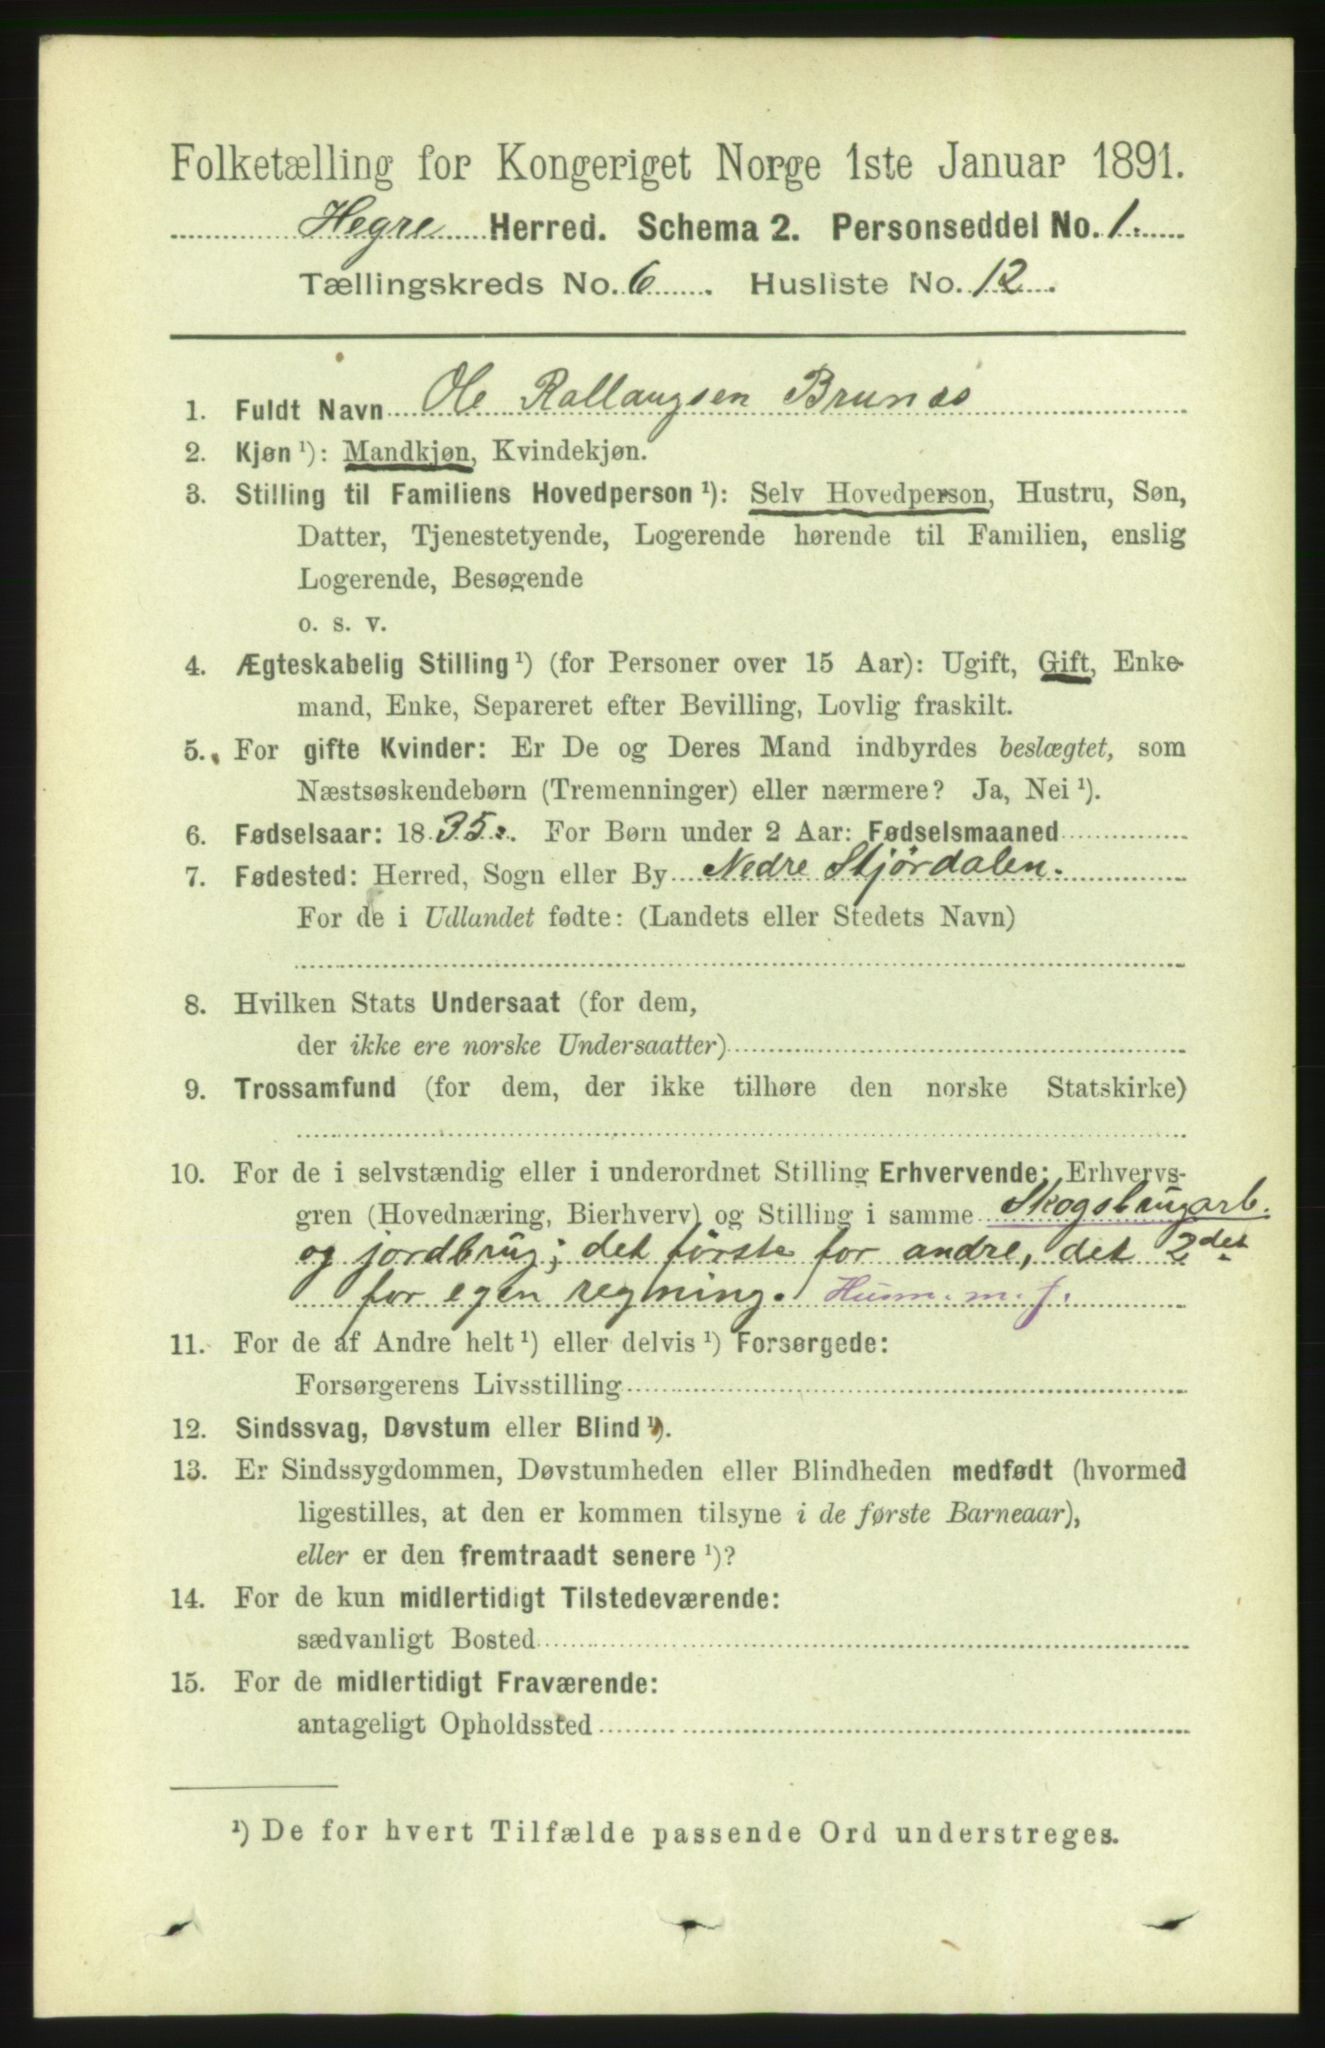 Folketælling for Kongeriget Norge 1ste Januar 1891.
Hegre Herred. Schema 2. Personseddel No. 1.
Tællingskreds No. 6. Husliste No. 12.
1. Fuldt Navn Ole Rallaugsen Brunås
2. Kjøn ¹): Mandkjøn, Kvindekjøn.
3. Stilling til Familiens Hovedperson ¹): Selv Hovedperson, Hustru, Søn,
Datter, Tjenestetyende, Logerende hørende til Familien, enslig
Logerende, Besøgende
o. s. v.
4. Ægteskabelig Stilling ¹) (for Personer over 15 Aar): Ugift, Gift, Enke-
mand, Enke, Separeret efter Bevilling, Lovlig fraskilt.
5. For gifte Kvinder: Er De og Deres Mand indbyrdes beslægtet, som
Næstsøskendebørn (Tremenninger) eller nærmere? Ja, Nei ¹).
6. Fødselsaar: 1835. For Børn under 2 Aar: Fødselsmaaned
7. Fødested: Herred, Sogn eller By Nedre Stjørdalen.
For de i Udlandet fødte: (Landets eller Stedets Navn)
8. Hvilken Stats Undersaat (for dem,
der ikke ere norske Undersaatter)
9. Trossamfund (for dem, der ikke tilhøre den norske Statskirke)
10. For de i selvstændig eller i underordnet Stilling Erhvervende: Erhvervs-
gren (Hovednæring, Bierhverv) og Stilling i samme Skogsbrugarb.
og jordbrug; det første for andre, det 2det
for egen regning. Husm. m. j.
11. For de af Andre helt ¹) eller delvis ¹) Forsørgede:
Forsørgerens Livsstilling
12. Sindssvag, Døvstum eller Blind ¹).
13. Er Sindssygdommen, Døvstumheden eller Blindheden medfødt (hvormed
ligestilles, at den er kommen tilsyne i de første Barneaar),
eller er den fremtraadt senere ¹)?
14. For de kun midlertidigt Tilstedeværende:
sædvanligt Bosted
15. For de midlertidigt Fraværende:
antageligt Opholdssted
¹) De for hvert Tilfælde passende Ord understreges.